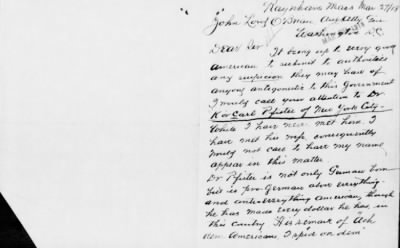 Raynham Mass Mar 27/18
John Lord O'Brien Asst Atty Gen
Washington D.C.
Dear Sir
It being up to every good
American to submit to authorities
any suspicion they may have of
anyone antagonistic to this Government
I merely call your attention to Dr.
Karl Pfister of New York City.
While I have never met him I
have met his wife consequently
merely not care to have my name
appear in this matter
Dr Pfister is not only German born
but is pro-German above everything
and anti-everything American, though
he has made every dollar he has, in
this country. His remark of "Ach
Americans, I spid on dem"